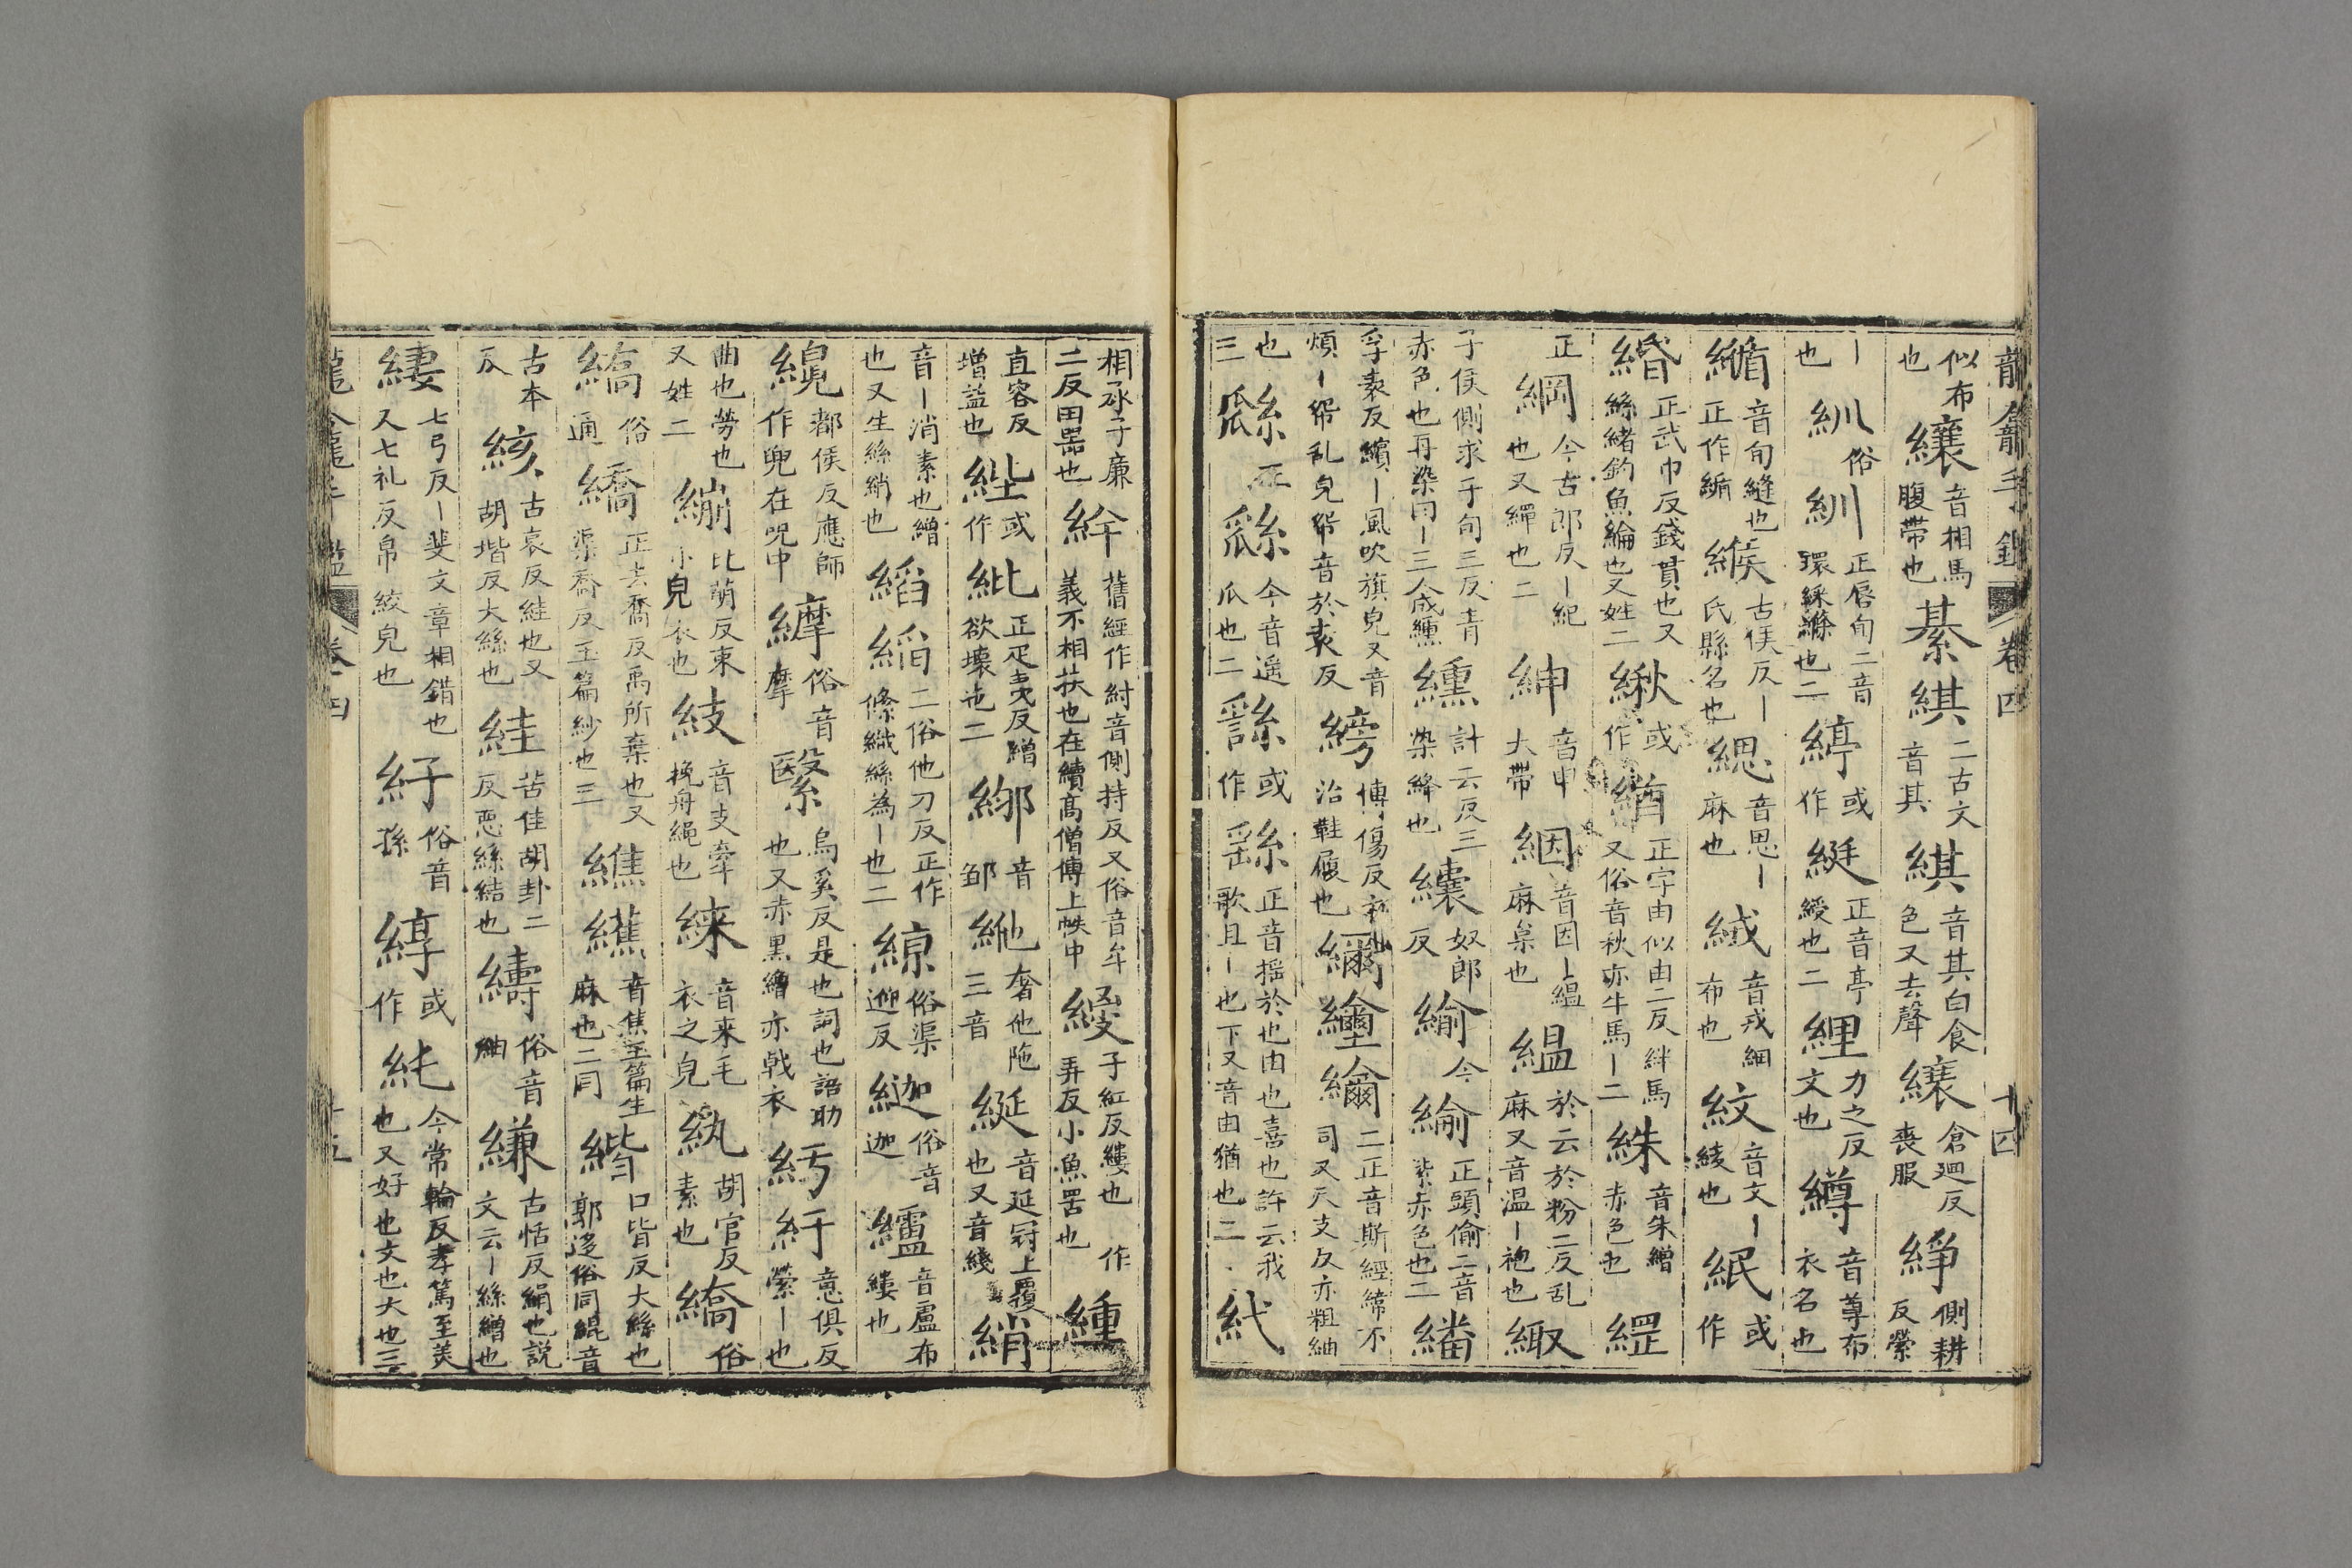 龍龕手鑑 卷四 十四
似布也 纕 音相馬腹帶也 綦 綨 二古文音其 綨 音其白食色又去聲 縗 倉廻反喪服 綪 側耕反縈
丨也 紃 俗 紃 正唇旬二音環綵絛也二 𦃐 或作 綎 正音亭綬也二 䋥 力之反文也 繜 音尊布衣名也
䋸 音旬縫也正作 緱 古侯反丨氏縣名也 緦 音思丨麻也 絨 音戎細布也 紋 音文丨綾也 緍 或作
緡 正武巾反錢貫也又絲緒釣魚綸也又姓二 緧 或作 緧 正字由似由二反絆馬又俗音秋亦牛馬丨二 絑 音朱繒赤色也 綱
正 綱 今古郎反丨紀也又繩也二 紳 音申大帶 絪 音因丨緼麻枲也 緼 於云於粉二反乱麻又音温丨袍也 緅
子侯側求子句三反青赤色也再染曰丨三合成纁 纁 許云反三染絳也 䌞 奴郎反 緰 今 緰 正頭偷二音紫赤色也二 繙
孚袁反繽丨風吹旗皃又音煩丨䋣乱皃䋣音於袁反 縍 博傍反治鞋履也 𦇧 二正音斯經緯不同又尺支反亦粗紬
也三 繇 正 繇 今音遥瓜也二 繇 或作 繇 正音揺於也由也喜也許云我歌且丨也下又音由猶也二 紎
相承子廉二反田器也 䋔 舊經作紂音側持反又俗音牟義不相扶也在續高僧傳上帙中 緵 子紅反縷也弄反小魚罟也 緟 作
直容反增益也 紕 或作 紕 正疋夷反繒欲壞也二 䋺 音邹 絁 奢他陁三音 綖 音延冠上覆也又音綫 綃
音丨消素也繒也又生絲綃也 縚 縚 二俗他刀反正作絛織絲為丨也二 綡 俗渠迎反 䋾 俗音迦 纑 音盧布縷也
䌈 都侯反應師作兜在呪中 䌕 俗音摩 緊 烏奚反是也詞也語助也又赤黒繒亦戟衣 紆 紆 意俱反縈丨也
曲也勞也又姓二 綳 比萌反束小兒衣也 䋈 音支牽挽舟繩也 䋱 音来毛衣之皃 紈 胡官反素也 繑 俗
繑 俗通 繑 正去喬反禹所棄也又渠喬反玉篇紗也三 繏 䌭 音焦玉篇生麻也二同 緒 口皆反大絲也郭迻俗同緄音
古本反 絯 古哀反絓也又胡堦反大絲也 絓 苦佳胡卦二反惡絲結也 𦆭 俗音紬 縑 古恬反絹也說文云丨絲繒也
緀 七弓反丨斐文章相錯也又七礼反帛綾皃也 䋂 俗音孫 綧 或作 純 今常輪反孝篤至美也又好也文也大也三
龍龕手鑑 卷四 十五